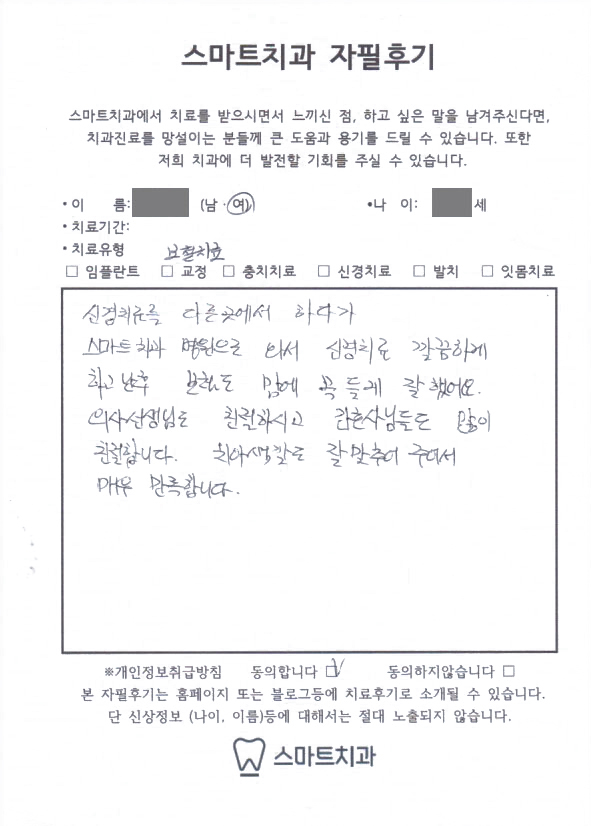 스마트치과 자필후기
스마트치과에서 치료를 받으시면서 느끼신 점, 하고 싶은 말을 남겨주신다면,
치과진료를 망설이는 분들께 큰 도움과 용기를 드릴 수 있습니다. 또한
저희 치과에 더 발전할 기회를 주실 수 있습니다.
•이 름: (남 · 여) •나 이: 세
•치료기간:
•치료유형 보철치료
□ 임플란트 □ 교정 □ 충치치료 □ 신경치료 □ 발치 □ 잇몸치료
신경치료를 다른곳에서 하다가
스마트치과 병원으로 와서 신경치료 깔끔하게
하고난후 보철도 맘에 꼭 들게 잘 했어요.
의사선생님도 친절하시고 간호사님들도 많이
친절합니다. 치아색깔도 잘 맞추어 주어서
매우 만족합니다.
※개인정보취급방침 동의합니다 ☑ 동의하지않습니다 □
본 자필후기는 홈페이지 또는 블로그등에 치료후기로 소개될 수 있습니다.
단 신상정보 (나이, 이름)등에 대해서는 절대 노출되지 않습니다.
스마트치과